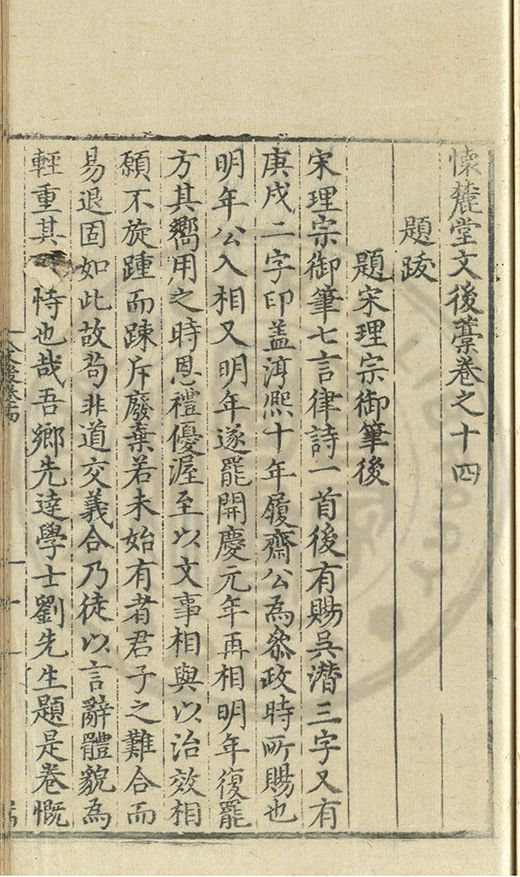 懷麓堂文後藁卷之十四
題跋
題宋理宗御筆後
宋理宗御筆七言律詩一首後有賜吳潛三字又有
庚戌二字印盖淳熈十年履齋公為叅政時所賜也
明年公入相又明年遂罷開慶元年再相明年復罷
方其嚮用之時恩禮優渥至以文事相與以治效相
願不旋踵而踈斥廢棄若未始有者君子之難合而
易退固如此故茍非道交義合乃徒以言辭體貌為
輕重其 恃也哉吾鄉先達學士劉先生題是卷慨